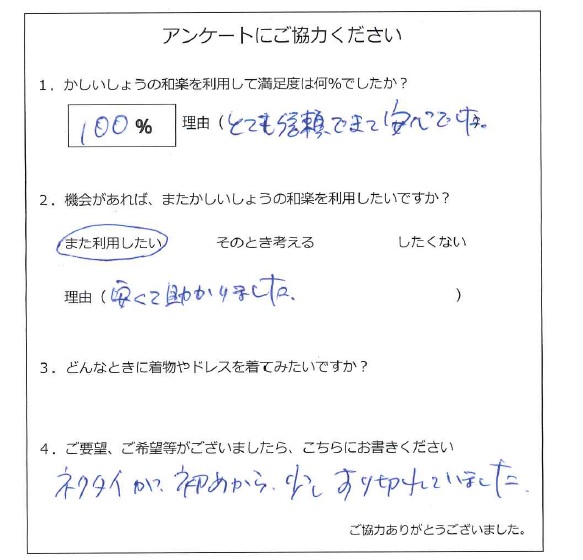 アンケートにご協力ください
1．かしいしょうの和楽を利用して満足度は何％でしたか？
100％ 理由（とても信頼できて安心でした。
2．機会があれば、またかしいしょうの和楽を利用したいですか？
また利用したい そのとき考える したくない
理由（安くて助かりました。）
3．どんなときに着物やドレスを着てみたいですか？
4．ご要望、ご希望等がございましたら、こちらにお書きください
ネクタイが、初めから、少し すり切れていました。
ご協力ありがとうございました。